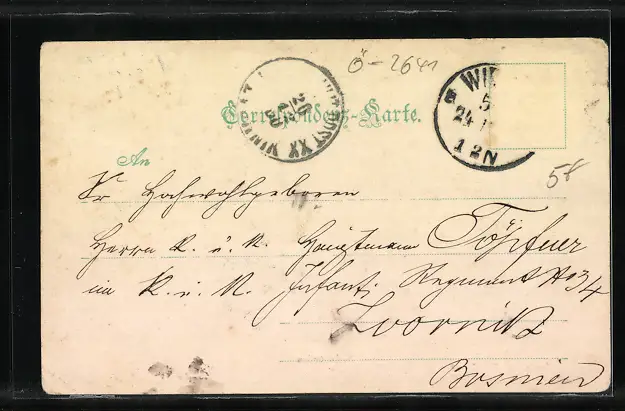 Ö-2641
Correspondenz-Karte.
WIE
5
24
12N
MILIT. POST XX
26
An
Sr Hochwohlgeboren
Herrn K. u. K. Hauptmann Töpfner
im K. u. K. Infant. Regiment No 34
Zvornik
Bosnien
58